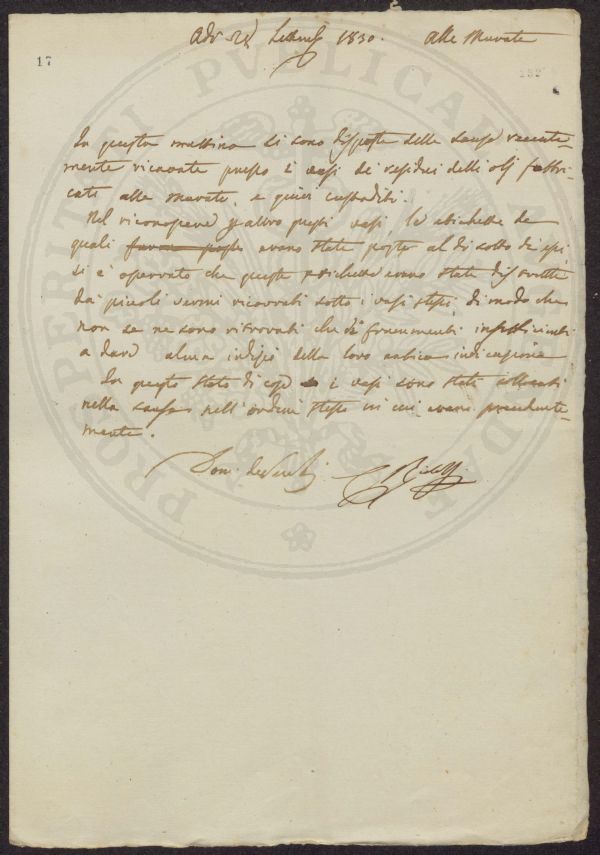 Adì Settembre 1830. alle Murate
17
In questa mattina si sono disposte delle recente-
mente ricavate presso i vasi dei residui delli olj fabbri-
cati alle murate, e quivi custoditi.
Nel riconoscere altro questi vasi le etichette de
quali erano state poste al di sotto di essi
si è osservato che queste etichette erano state distrutte
da piccoli vermi ricovrati sotto i vasi stessi, di modo che
non se ne sono ritrovati che de frammenti insufficienti
a dare alcun indizio della loro antica indicazione
In questo stato di cose i vasi sono stati collocati
nella nell'ordine stesso in cui erano precedente-
mente.
PRO PERITI PVBLICAM